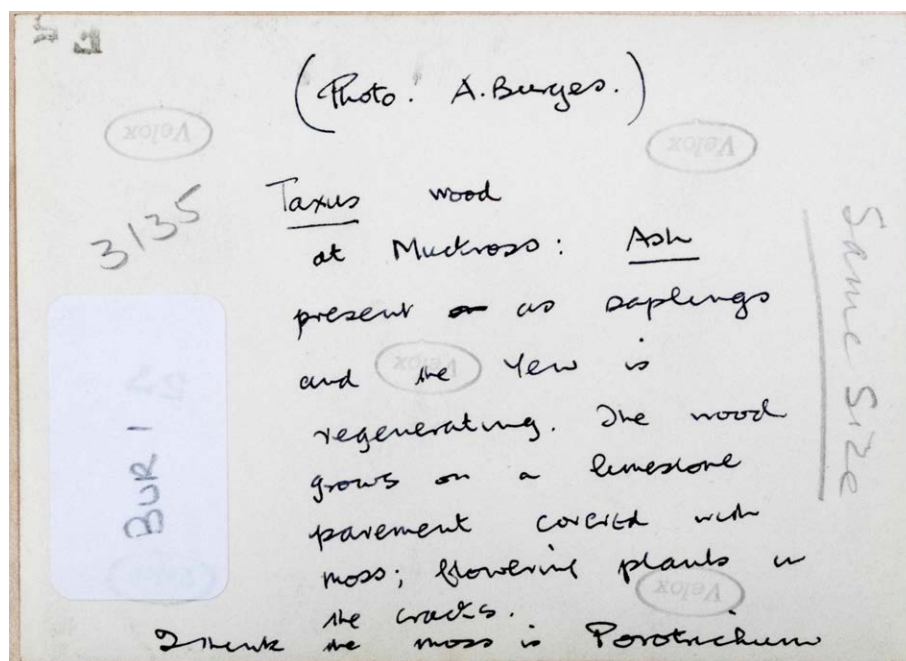 (Photo: A. Burges.)
Velox
Velox
3135
Taxus wood
at Muckross: Ash
present as saplings
and the Yew is
Velox
regenerating. The wood
grows on a limestone
pavement covered with
moss; flowering plants in
the cracks.
Velox
I think the moss is Porotrichum
BUR 1
Same Size